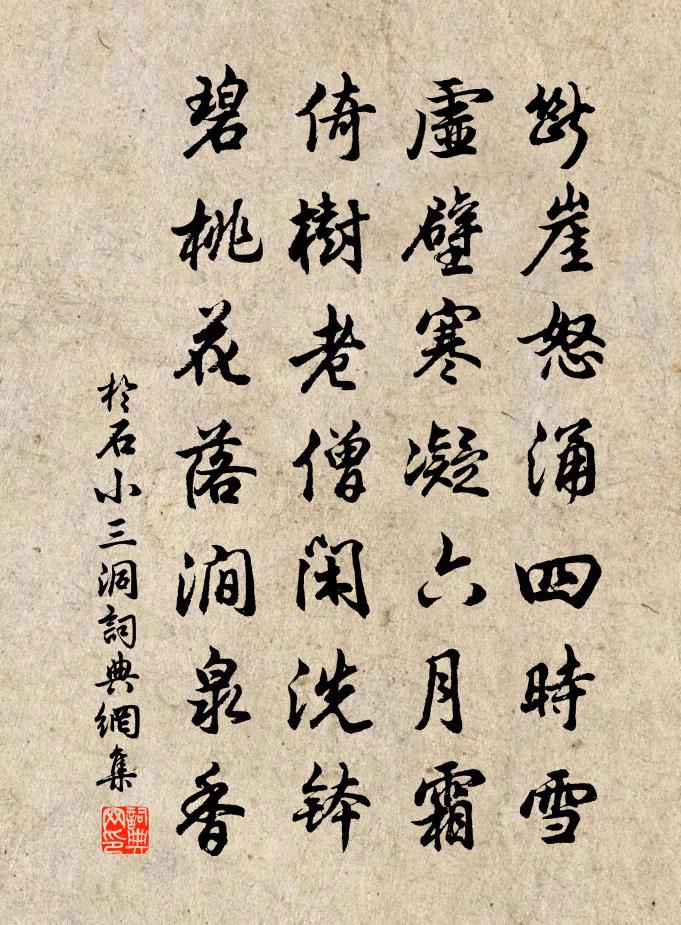 斷崖怒涌四時雪
虛壁寒凝六月霜
倚樹老僧閑洗鉢
碧桃花落澗泉香
於石小三洞詞典網集
詞典網印